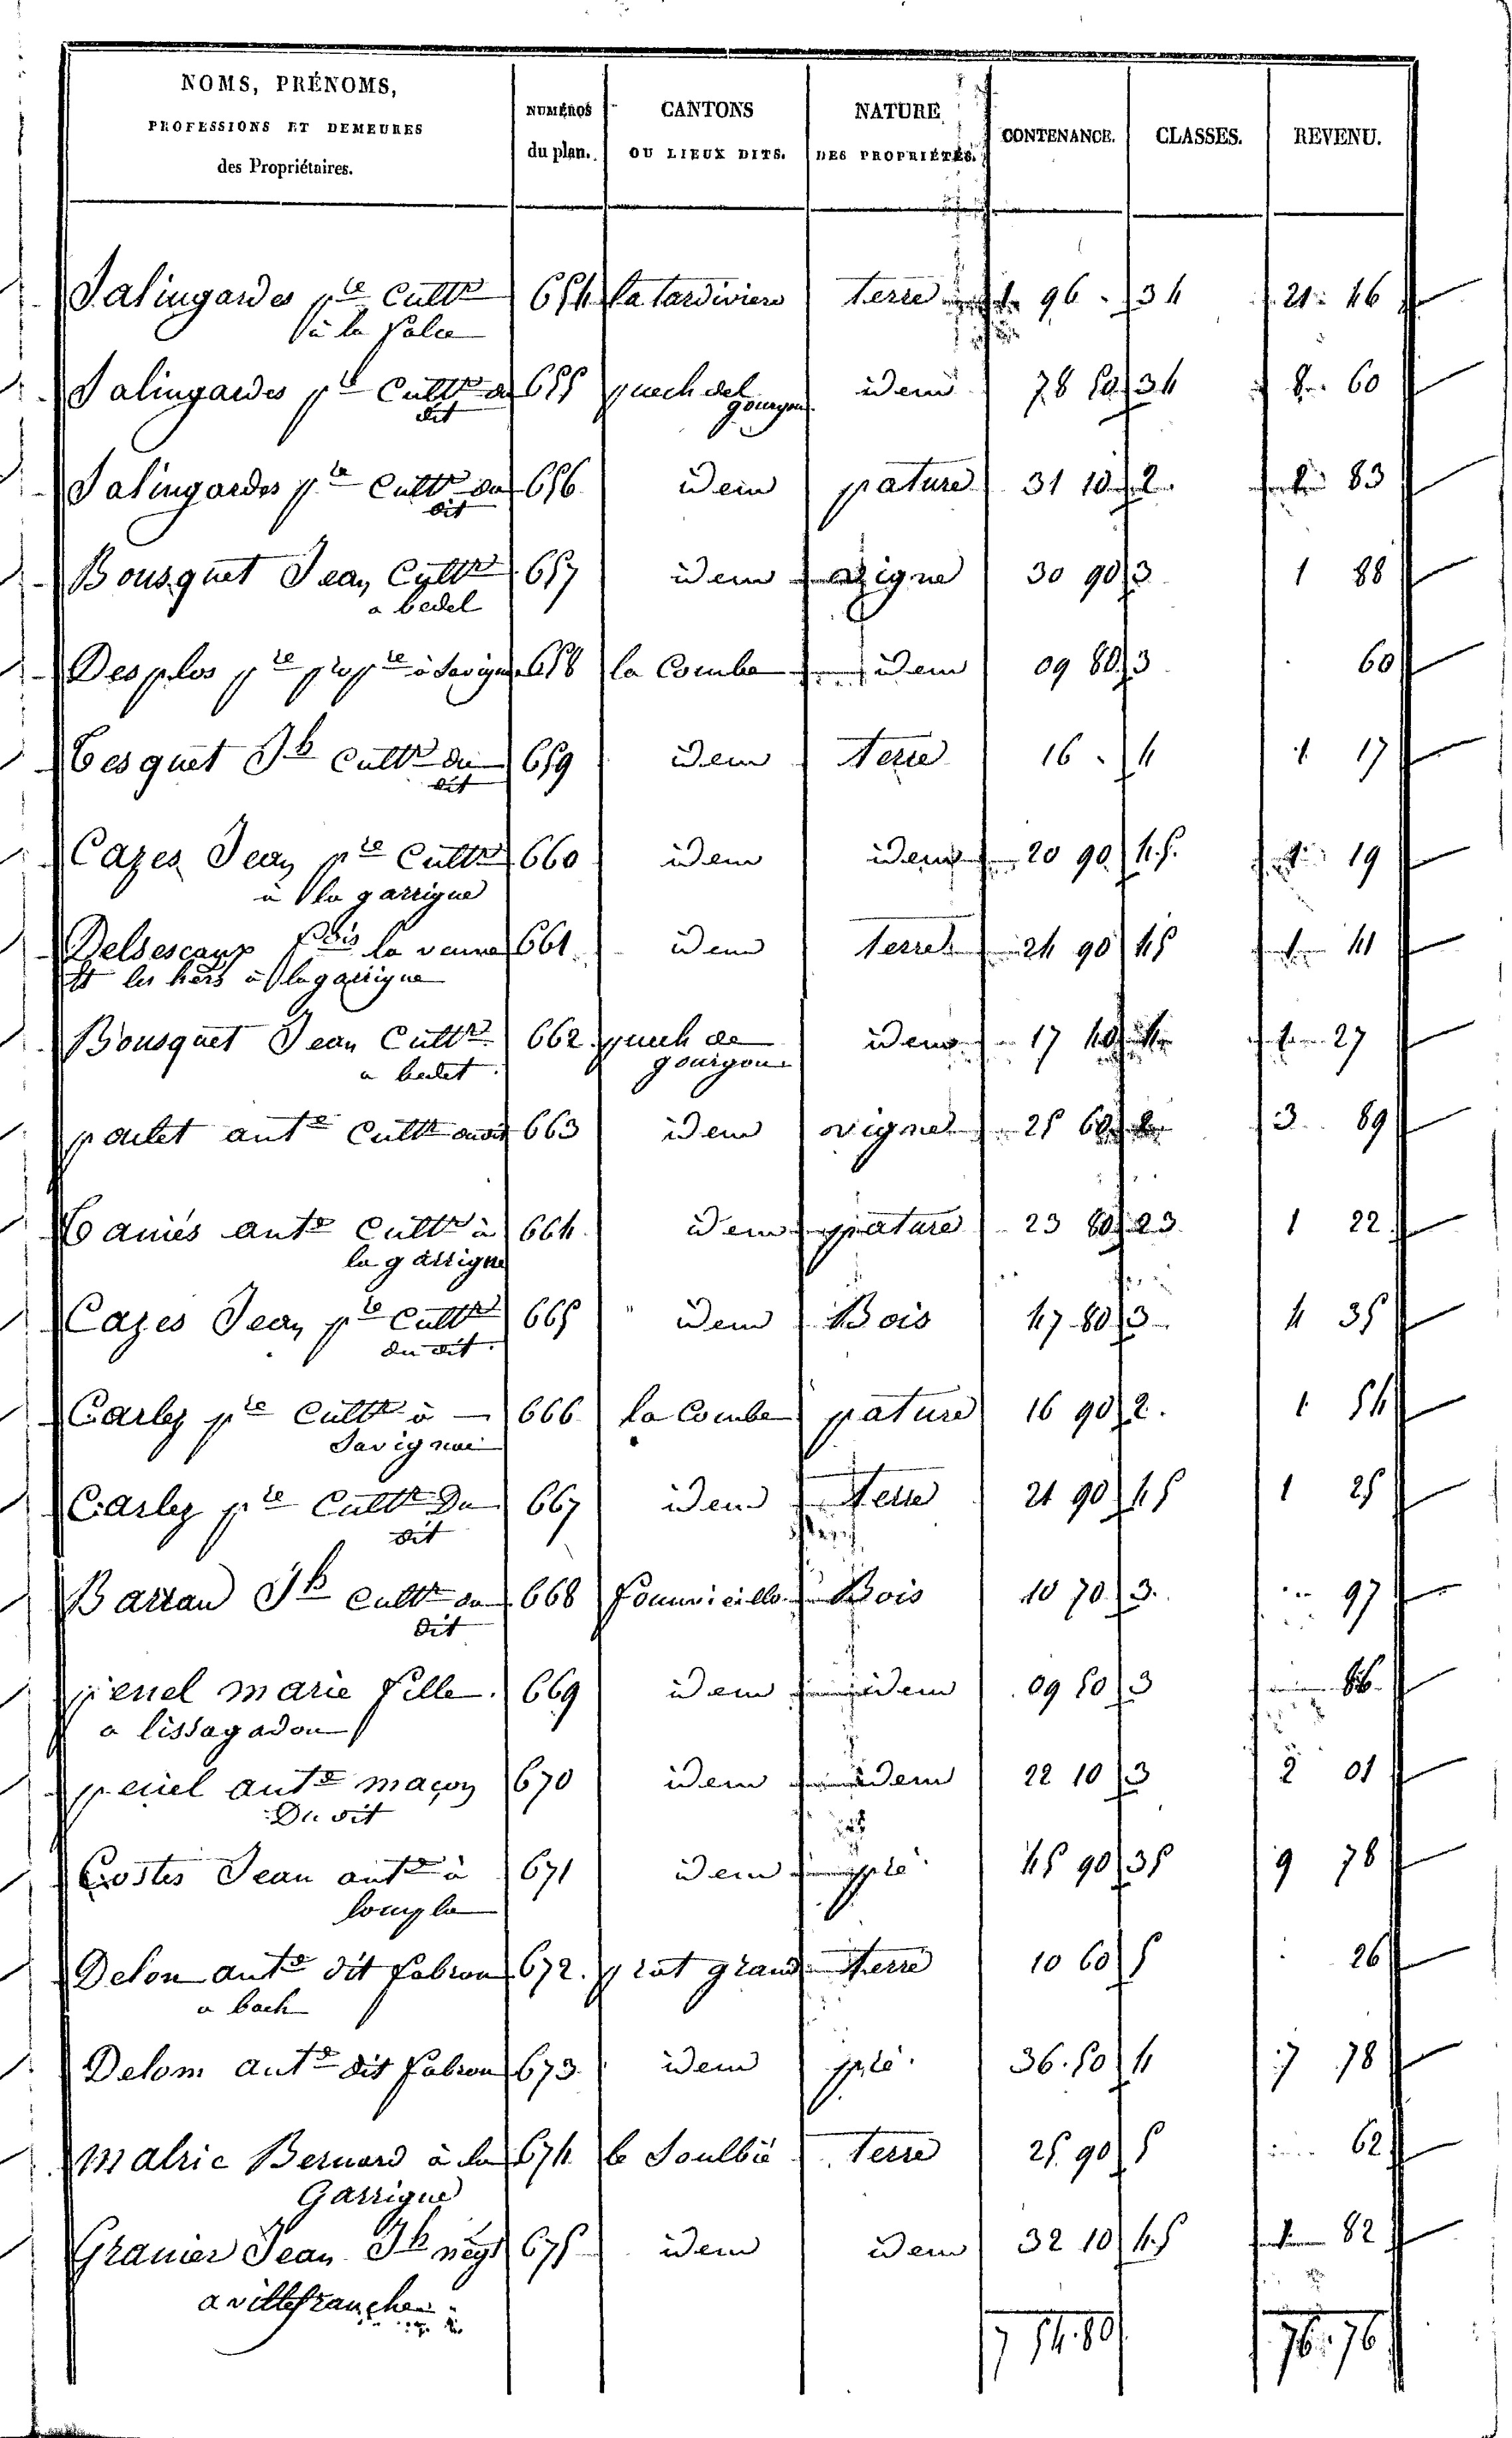 NOMS, PRÉNOMS, PROFESSIONS ET DEMEURES des Propriétaires. NUMÉROS du plan. CANTONS OU LIEUX DITS. NATURE DES PROPRIÉTÉS. CONTENANCE. CLASSES. REVENU.
Salingardes pre Cultr 654 la tardiviere terre 1 96 . 34 21 46
à la Salce
Salingardes pre Cultr du 655 puech del gourgou idem 78 50 34 8 60
dit
Salingardes pre Cultr du 656 idem pature 31 10 2 2 83
dit
Bousquet Jean Cultr 657 idem vigne 30 90 3 1 88
a bedel
Desplos pre propre à Savignac 658 la Combe idem 09 80 3 60
Cesquet Jh Cultr du 659 idem terre 16 . 4 1 17
dit
Cazes Jean pre Cultr 660 idem idem 20 90 4.5. 1 19
à la garrigue
Delsescaux fois la veuve 661 idem terre 24 90 45 1 41
et les hers à la garrigue
Bousquet Jean Cultr 662 puech de gourgou idem 17 40 4 1 27
a bedet
poulet ante Cultr dudit 663 idem vigne 25 60 2 3 89
ante Cultr à 664 idem pature 23 80 23 1 22
la garrigue
Cazes Jean pre Cultr 665 idem Bois 47 80 3 4 35
du dit
Carles pre Cultr à 666 la Combe pature 16 90 2. 1 54
Savignac
Carles pre Cultr Du 667 idem Terre 21 90 45 1 25
dit
Barrau Jh Cultr du 668 fonvieille Bois 10 70 3. 97
dit
penel marie fille 669 idem idem 09 50 3 86
a lissagadou
penel ante maçon 670 idem idem 22 10 3 2 01
Du dit
Costes Jean ante à 671 idem pré 45 90 35 9 78
loupla
Delon ante dit fabron 672. prat grand terre 10 60 5 26
a bach
Delom ante dit fabron 673 idem pré 36.50 4 7 78
Malric Bernard à la 674 le Soulbié Terre 25 90 5 62
Garrigue
Granier Jean Jh négt 675 idem idem 32 10 4.5 1 82
a villefranche
7 54.80 76.76